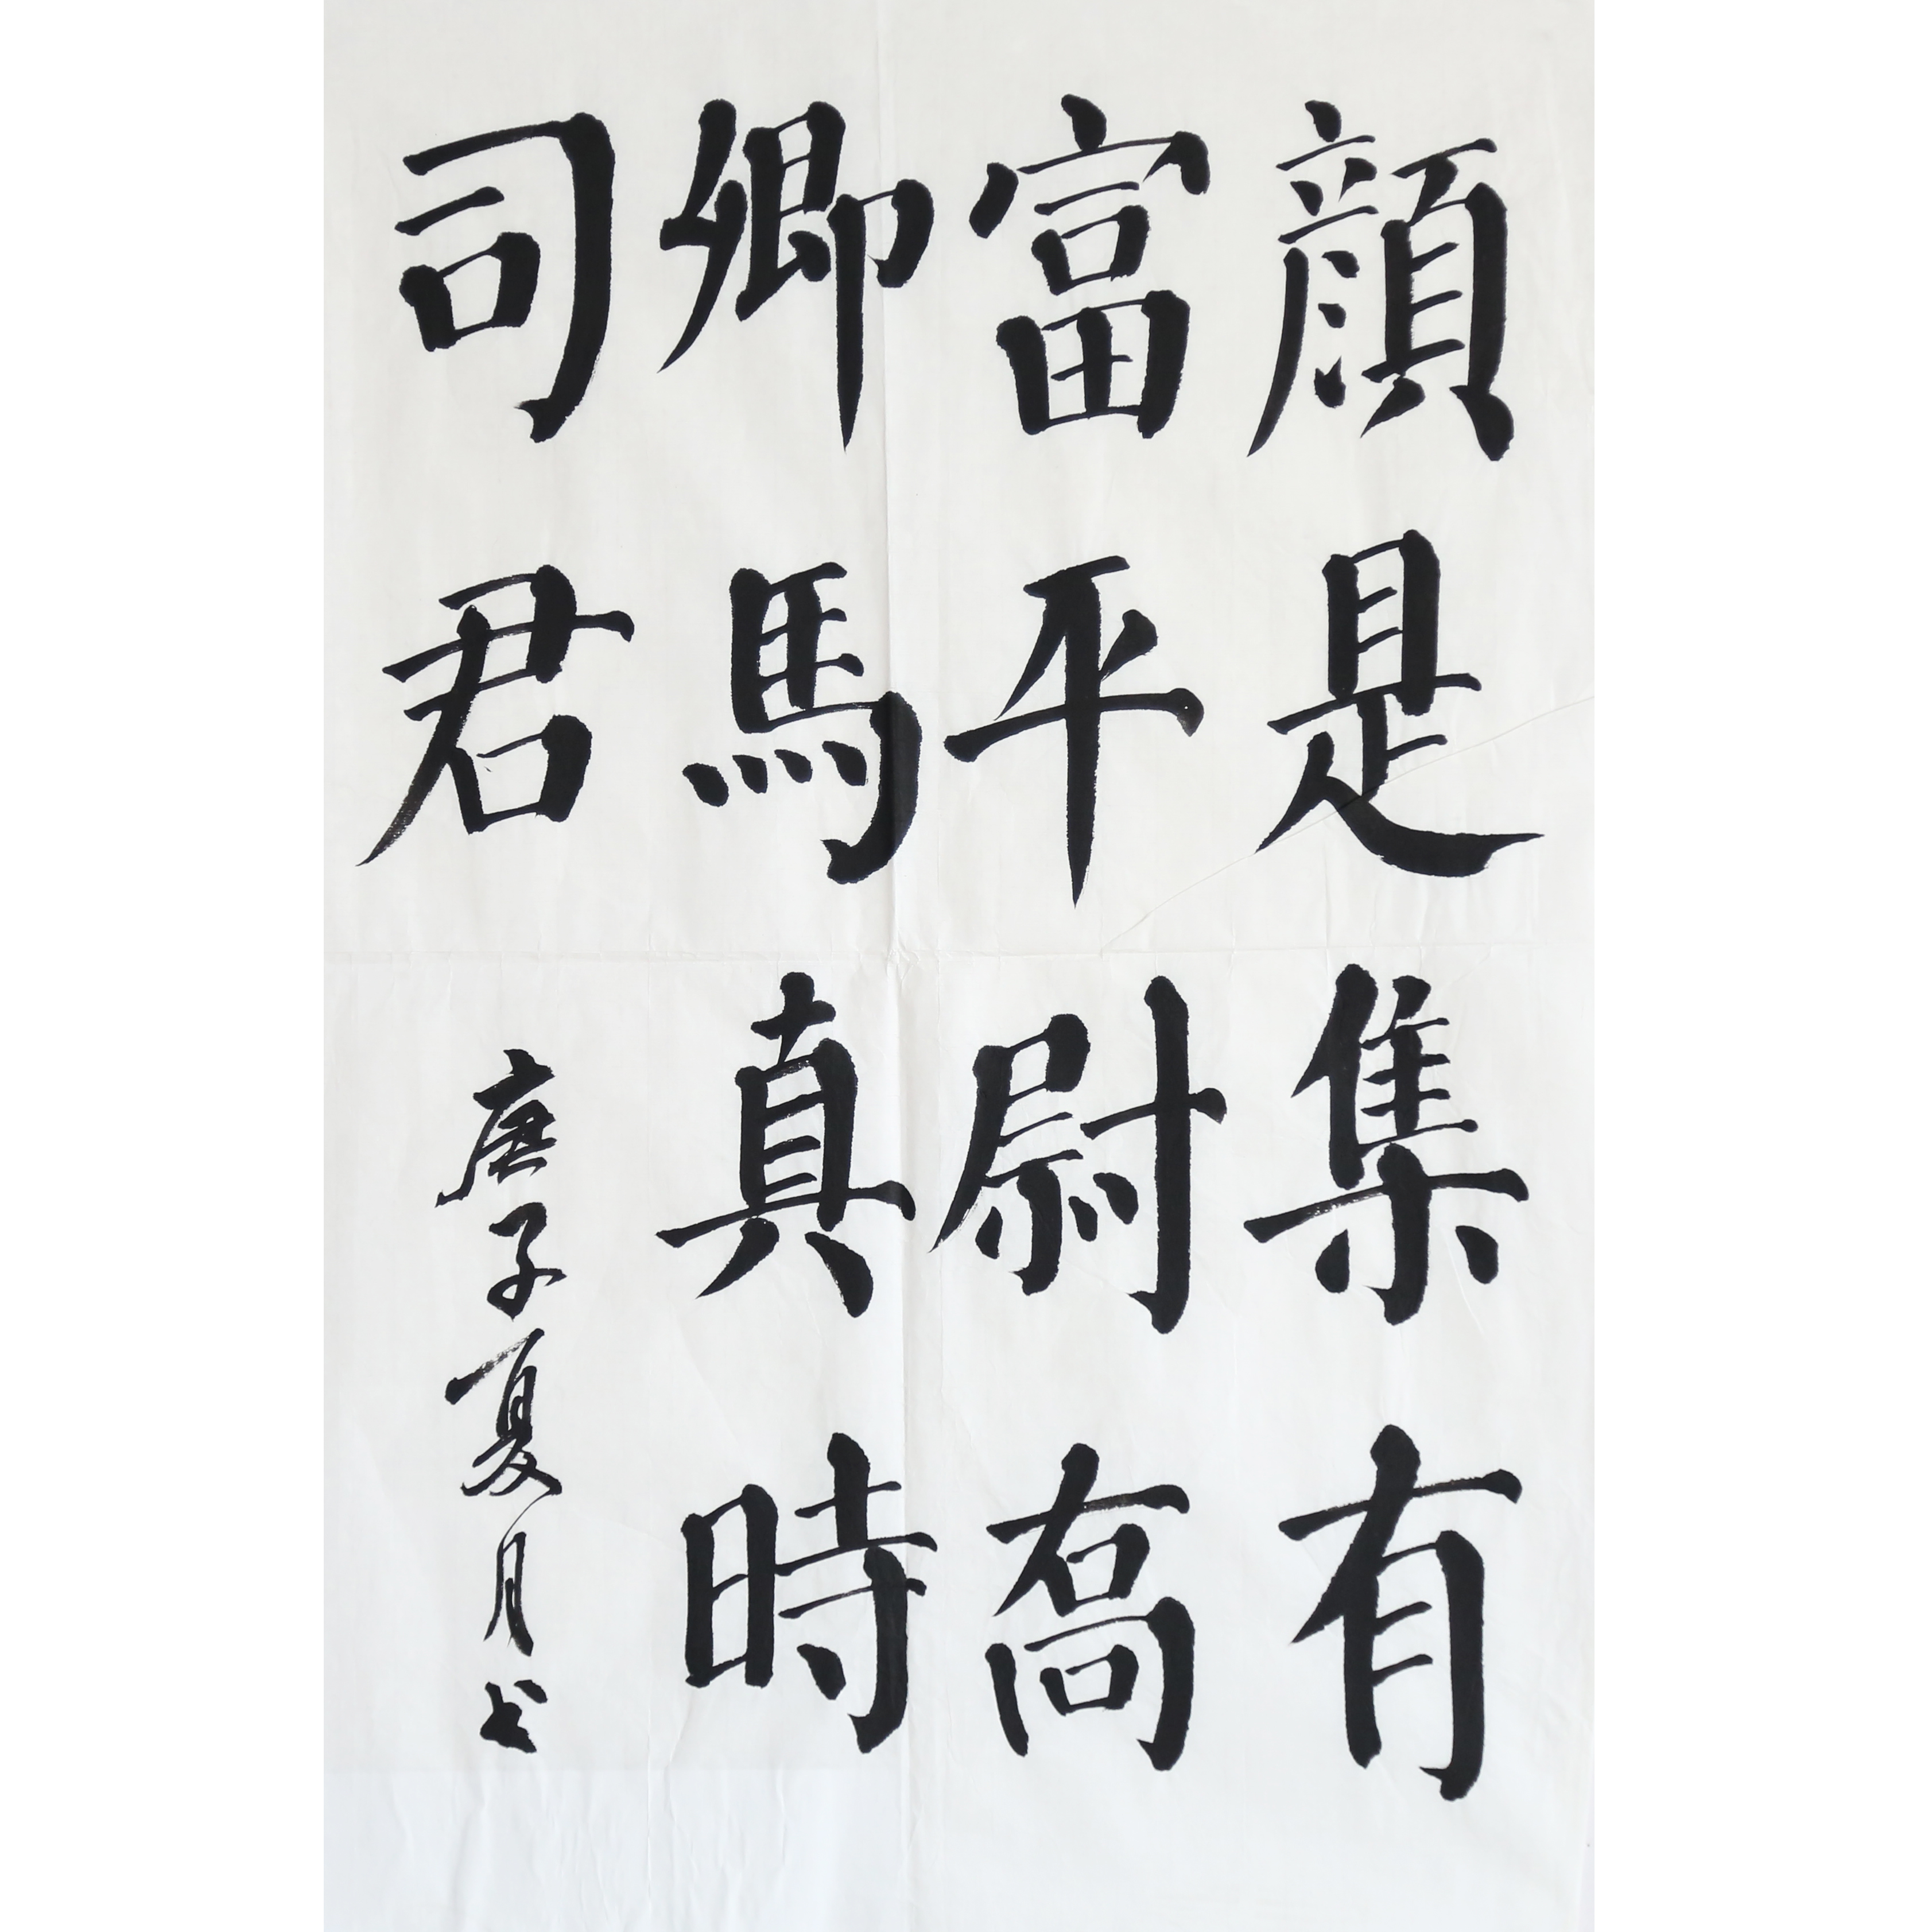 顏是集有
富平尉喬
卿馬真時
司君
庚子夏月书